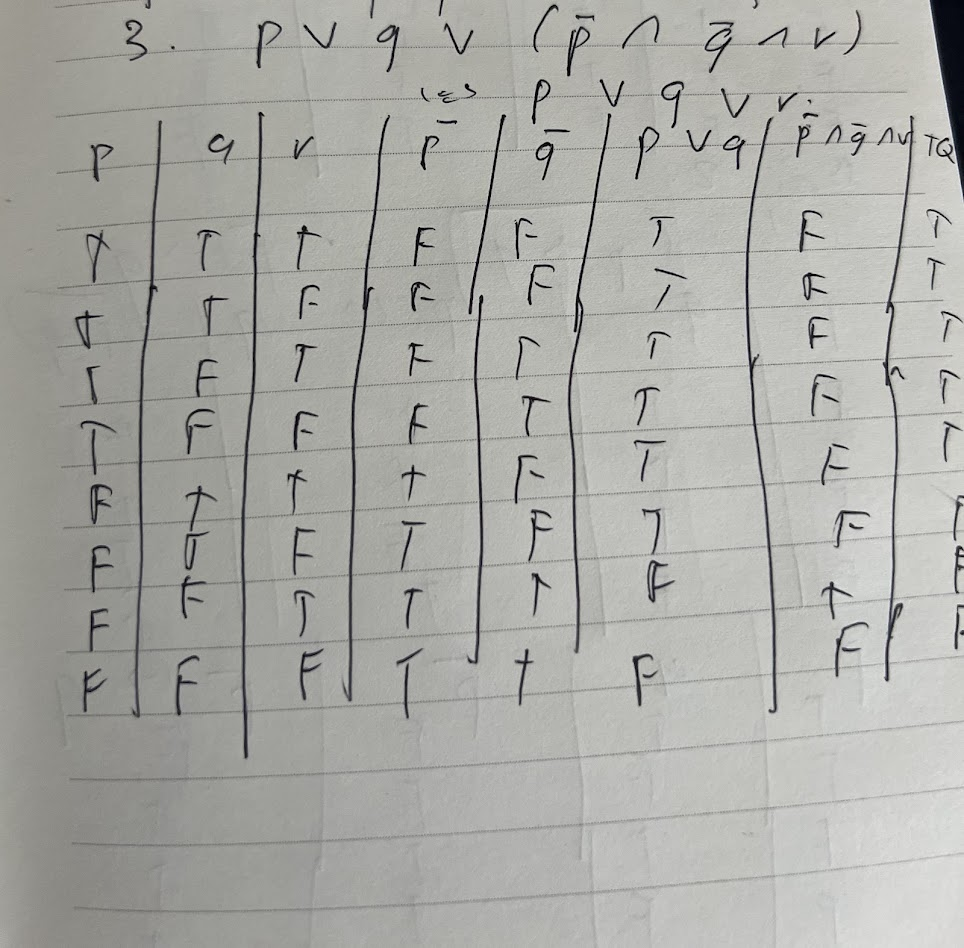 3. p ∨ q ∨ (p̄ ∧ q̄ ∧ r)
<=> p ∨ q ∨ r.
p q r p̄ q̄ p ∨ q p̄ ∧ q̄ ∧ r TQ
T T T F F T F T
T T F F F T F T
T F T F T T F T
T F F F T T F T
F T T T F T F T
F T F T F T F
F F T T T F T
F F F T T F F